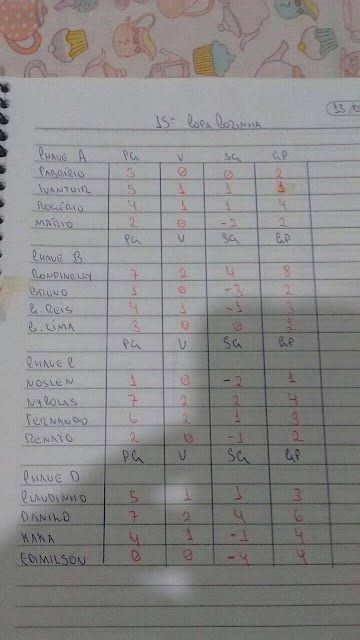 13/0
15ª COPA COZINHA
CHAVE A PG V SG GP
FABRÍCIO 3 0 0 2
IVANTUIR 5 1 1 1
ROGÉRIO 4 1 1 4
MÁRIO 2 0 -2 2
PG V SG GP
CHAVE B
RONDINELLY 7 2 4 8
BRUNO 1 0 -3 2
G. REIS 4 1 -1 3
G. LIMA 3 0 0 2
PG V SG GP
CHAVE C
NOSLEN 1 0 -2 1
NYCOLAS 7 2 2 4
FERNANDO 6 2 1 3
RENATO 2 0 -1 2
PG V SG GP
CHAVE D
CLAUDINHO 5 1 1 3
DANILO 7 2 4 6
KAKA 4 1 -1 4
EDIMILSON 0 0 -4 4